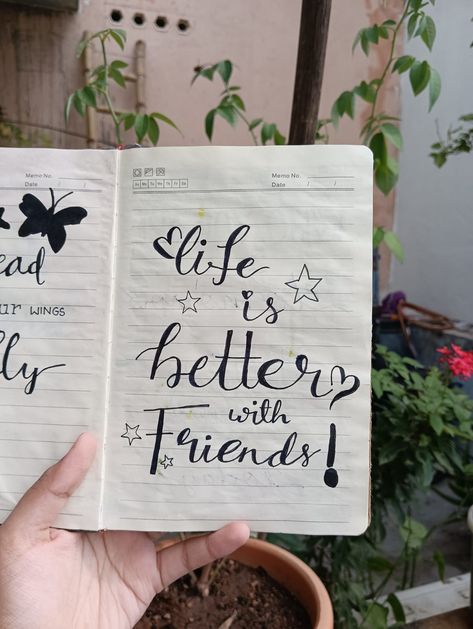 Memo No.
Date / /
ead
ur WINGS
ly
Memo No.
Date / /
Su Mo Tu We Th Fr Sa
life
is
better
with
Friends!